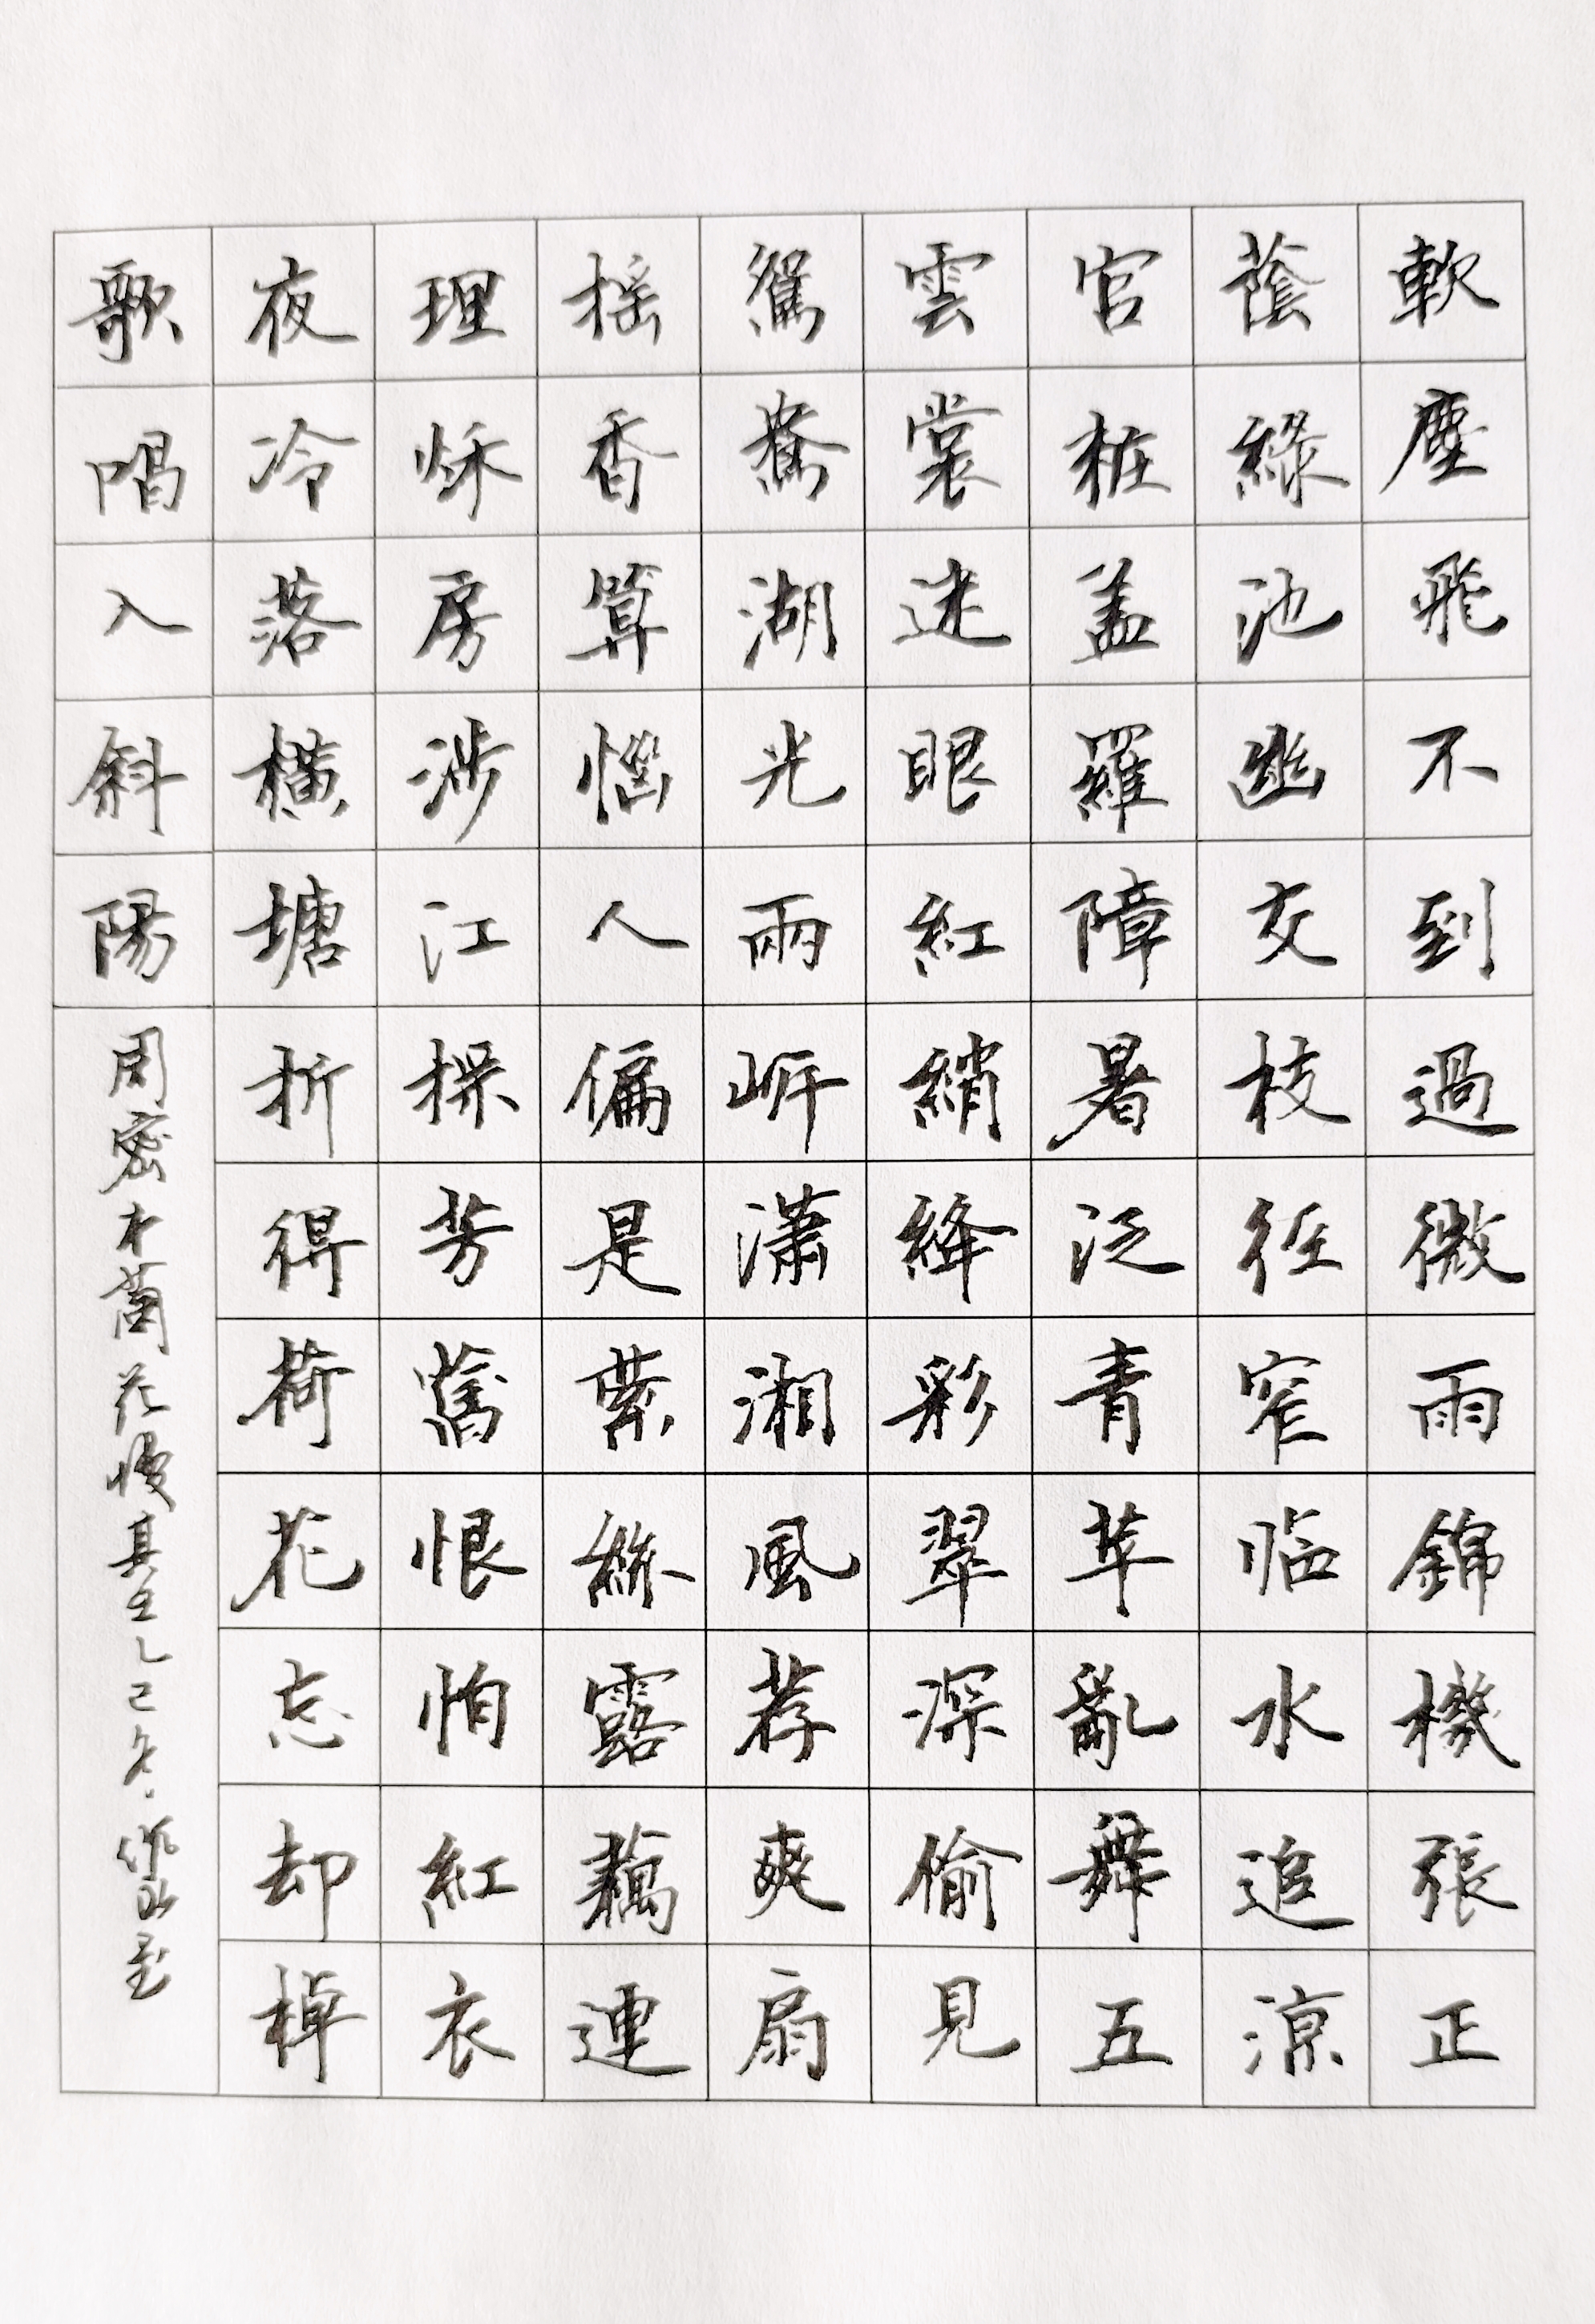 軟塵飛不到過微雨錦機張正
蔭綠池幽交枝徑窄臨水追涼
宮粧蓋羅障暑泛青苹亂舞五
雲裳迷眼紅綃絳彩翠深偷見
鴛鴦湖光兩岸瀟湘風荐爽扇
搖香算惱人偏是縈絲露藕連
理秋房涉江採芳舊恨怕紅衣
夜冷落橫塘折得荷花忘却棹
歌唱入斜陽
周密木蘭花慢其五乙巳冬